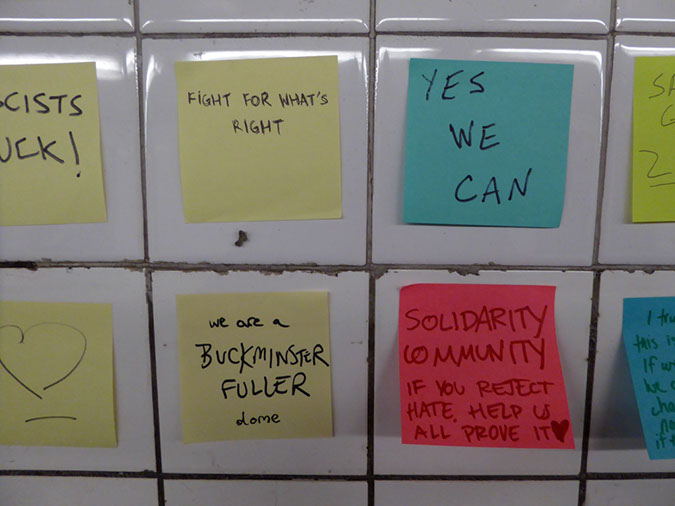 CISTS
UCK!
FIGHT FOR WHAT'S
RIGHT
YES
WE
CAN
SA
G
2
we are a
BUCKMINSTER
FULLER
dome
SOLIDARITY
COMMUNITY
IF YOU REJECT
HATE, HELP US
ALL PROVE IT
I tru
this i
If w
we c
cha
no
if t